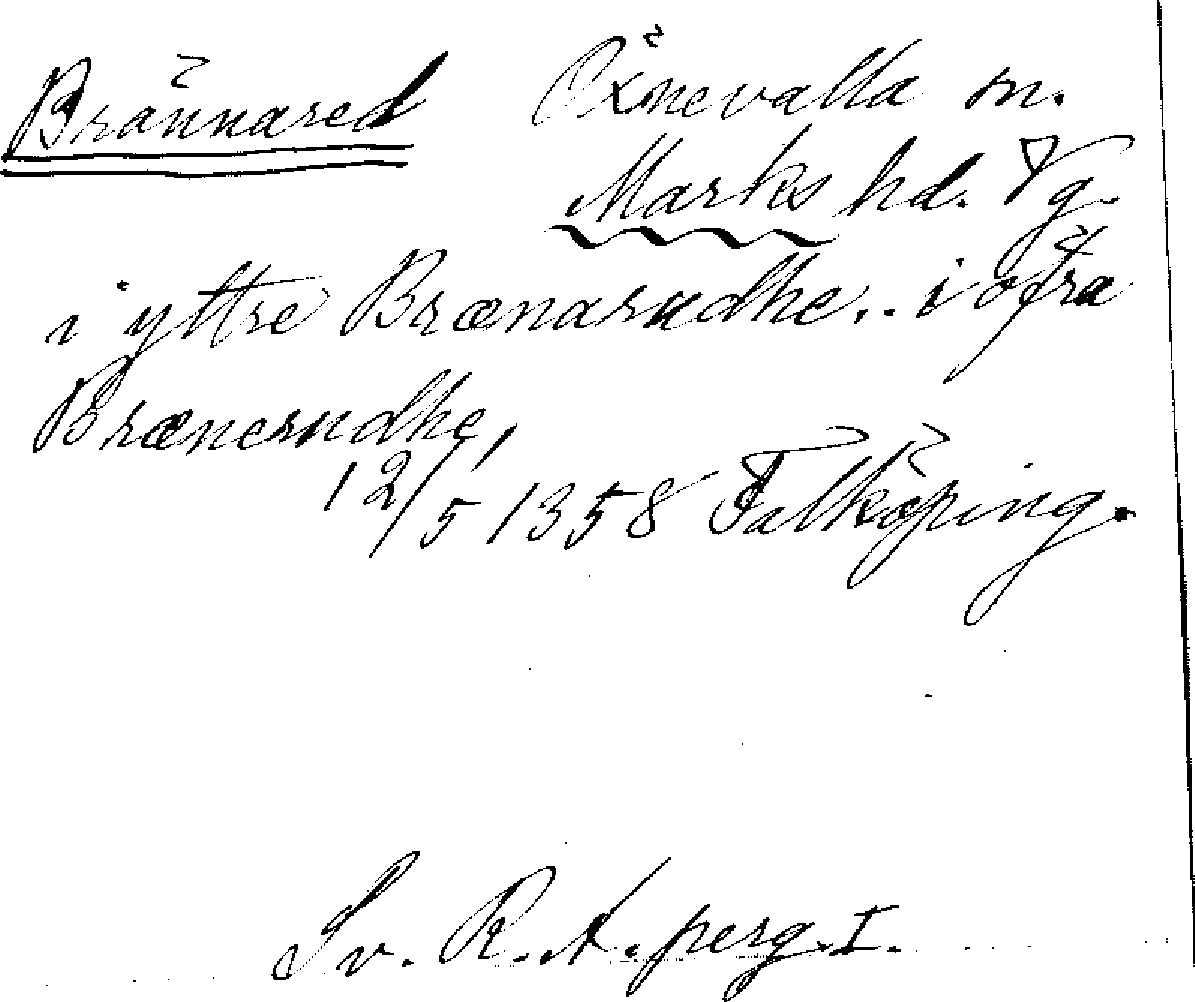 Brännared Öxnevalla sn.
Marks hd. Vg.
i yttre Brænarudhe.. i öfra
Brænerudhe,
12/5 1358 Falköping.
Sv. R.A. perg. I.